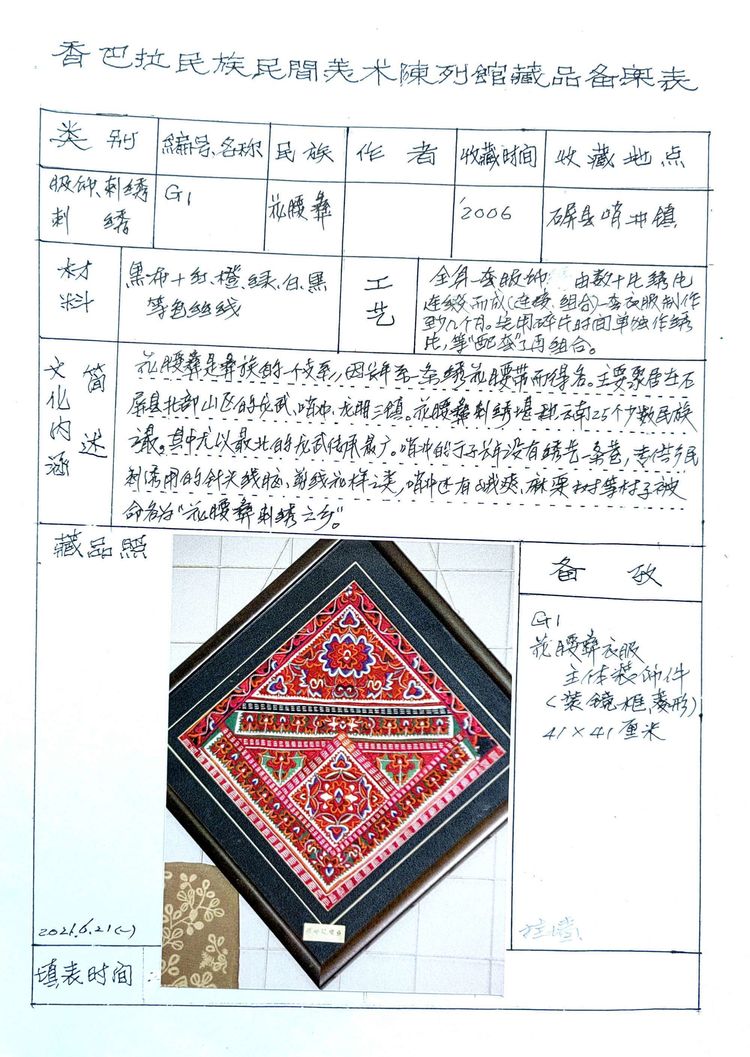 香巴拉民族民間美术陳列館藏品备案表
类别 編号、名称 民族 作者 收藏时间 收藏地点
服饰、刺绣
刺绣 G1 花腰彝 2006 石屏县哨冲镇
材料 黑布+红、橙、绿、白、黑
等色丝线
工艺 全身一套服饰 由数十片绣片
连缀而成(连缀、组合)一套衣服制作
至少几个月。先用碎片时间单独作绣
片,等"配套"了再组合。
文化内涵简述 花腰彝是彝族的一个支系,因长年系一条绣花腰带而得名。主要聚居在石
屏县北部山区的龙武、哨冲、龙朋三镇。花腰彝刺绣堪称云南25个少数民族
之最。其中尤以最北的龙武传承最广。哨冲的 绣 一条巷,专供乡民
刺绣用的针头线脑、剪纸花样之类,哨冲还有 麻栗树等村子被
命名为"花腰彝刺绣之乡"。
藏品照
备攷
G1
花腰彝衣服
主体装饰件
(装镜框,菱形)
41×41厘米
挂墙
2021.6.21(一)
填表时间: